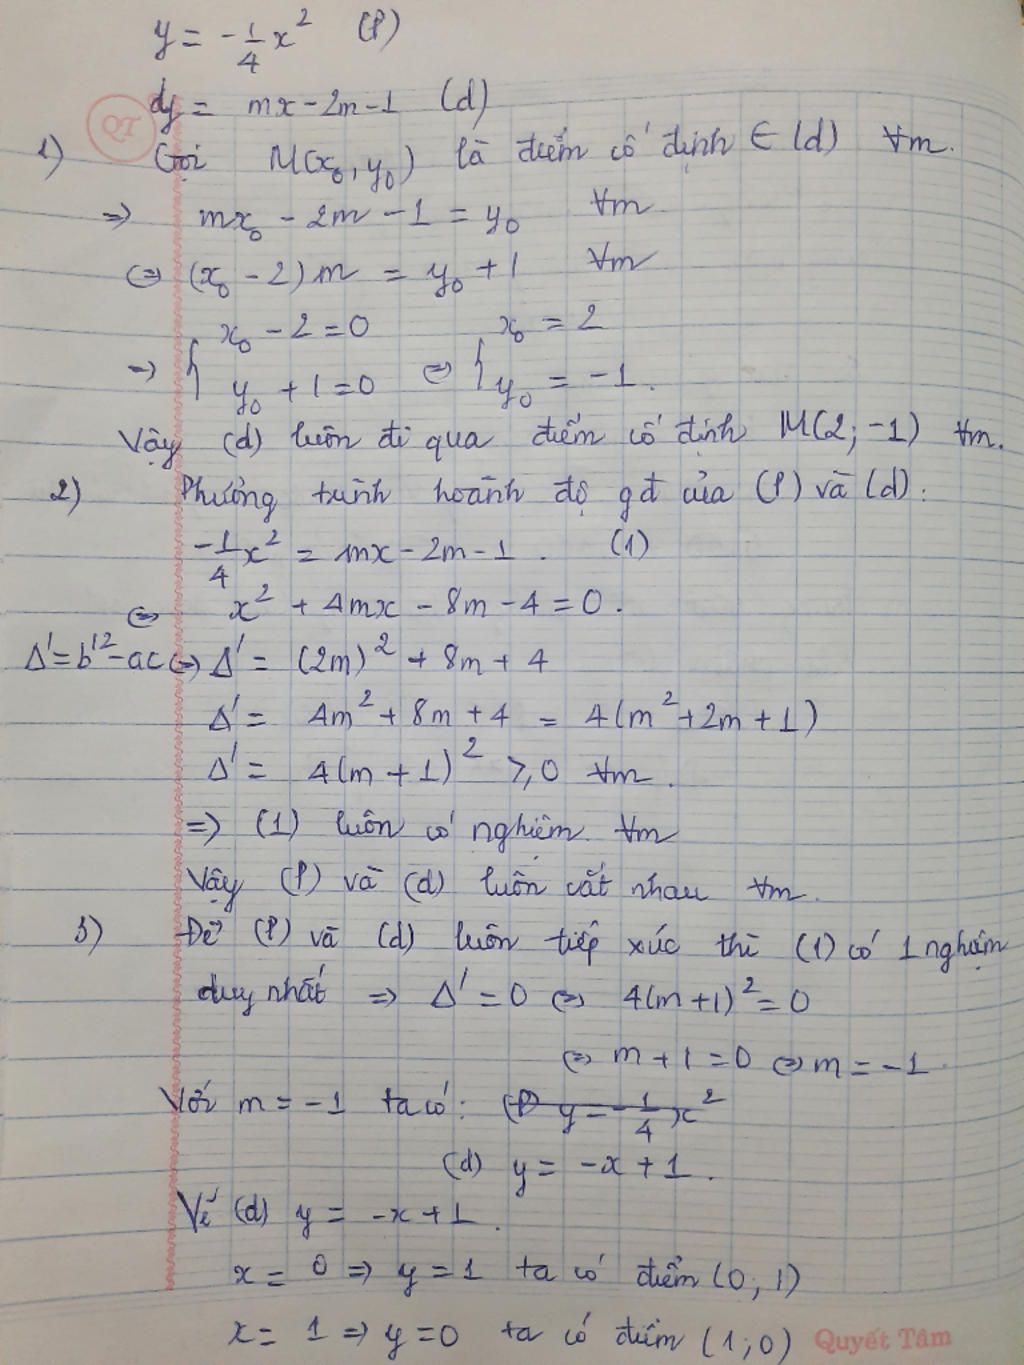 y = -1/4 x² (P)
dy = mx - 2m - 1 (d)
QT
1) Gọi M(x₀, y₀) là điểm cố định ∈ (d) ∀m.
=> mx₀ - 2m - 1 = y₀ ∀m
<=> (x₀ - 2)m = y₀ + 1 ∀m
x₀ - 2 = 0 x₀ = 2
=> { y₀ + 1 = 0 <=> { y₀ = -1.
Vậy (d) luôn đi qua điểm cố định M(2; -1) ∀m.
2) Phương trình hoành độ gđ của (P) và (d):
-1/4 x² = mx - 2m - 1. (1)
<=> x² + 4mx - 8m - 4 = 0.
Δ' = b'² - ac <=> Δ' = (2m)² + 8m + 4
Δ' = 4m² + 8m + 4 = 4(m² + 2m + 1)
Δ' = 4(m + 1)² ≥ 0 ∀m.
=> (1) luôn có nghiệm ∀m
Vậy (P) và (d) luôn cắt nhau ∀m.
3) Để (P) và (d) luôn tiếp xúc thì (1) có 1 nghiệm
duy nhất => Δ' = 0 <=> 4(m+1)² = 0
<=> m + 1 = 0 <=> m = -1.
Với m = -1 ta có: (P) y = -1/4 x²
(d) y = -x + 1.
Vẽ (d) y = -x + 1.
x = 0 => y = 1 ta có điểm (0; 1)
x = 1 => y = 0 ta có điểm (1; 0)
Quyết Tâm